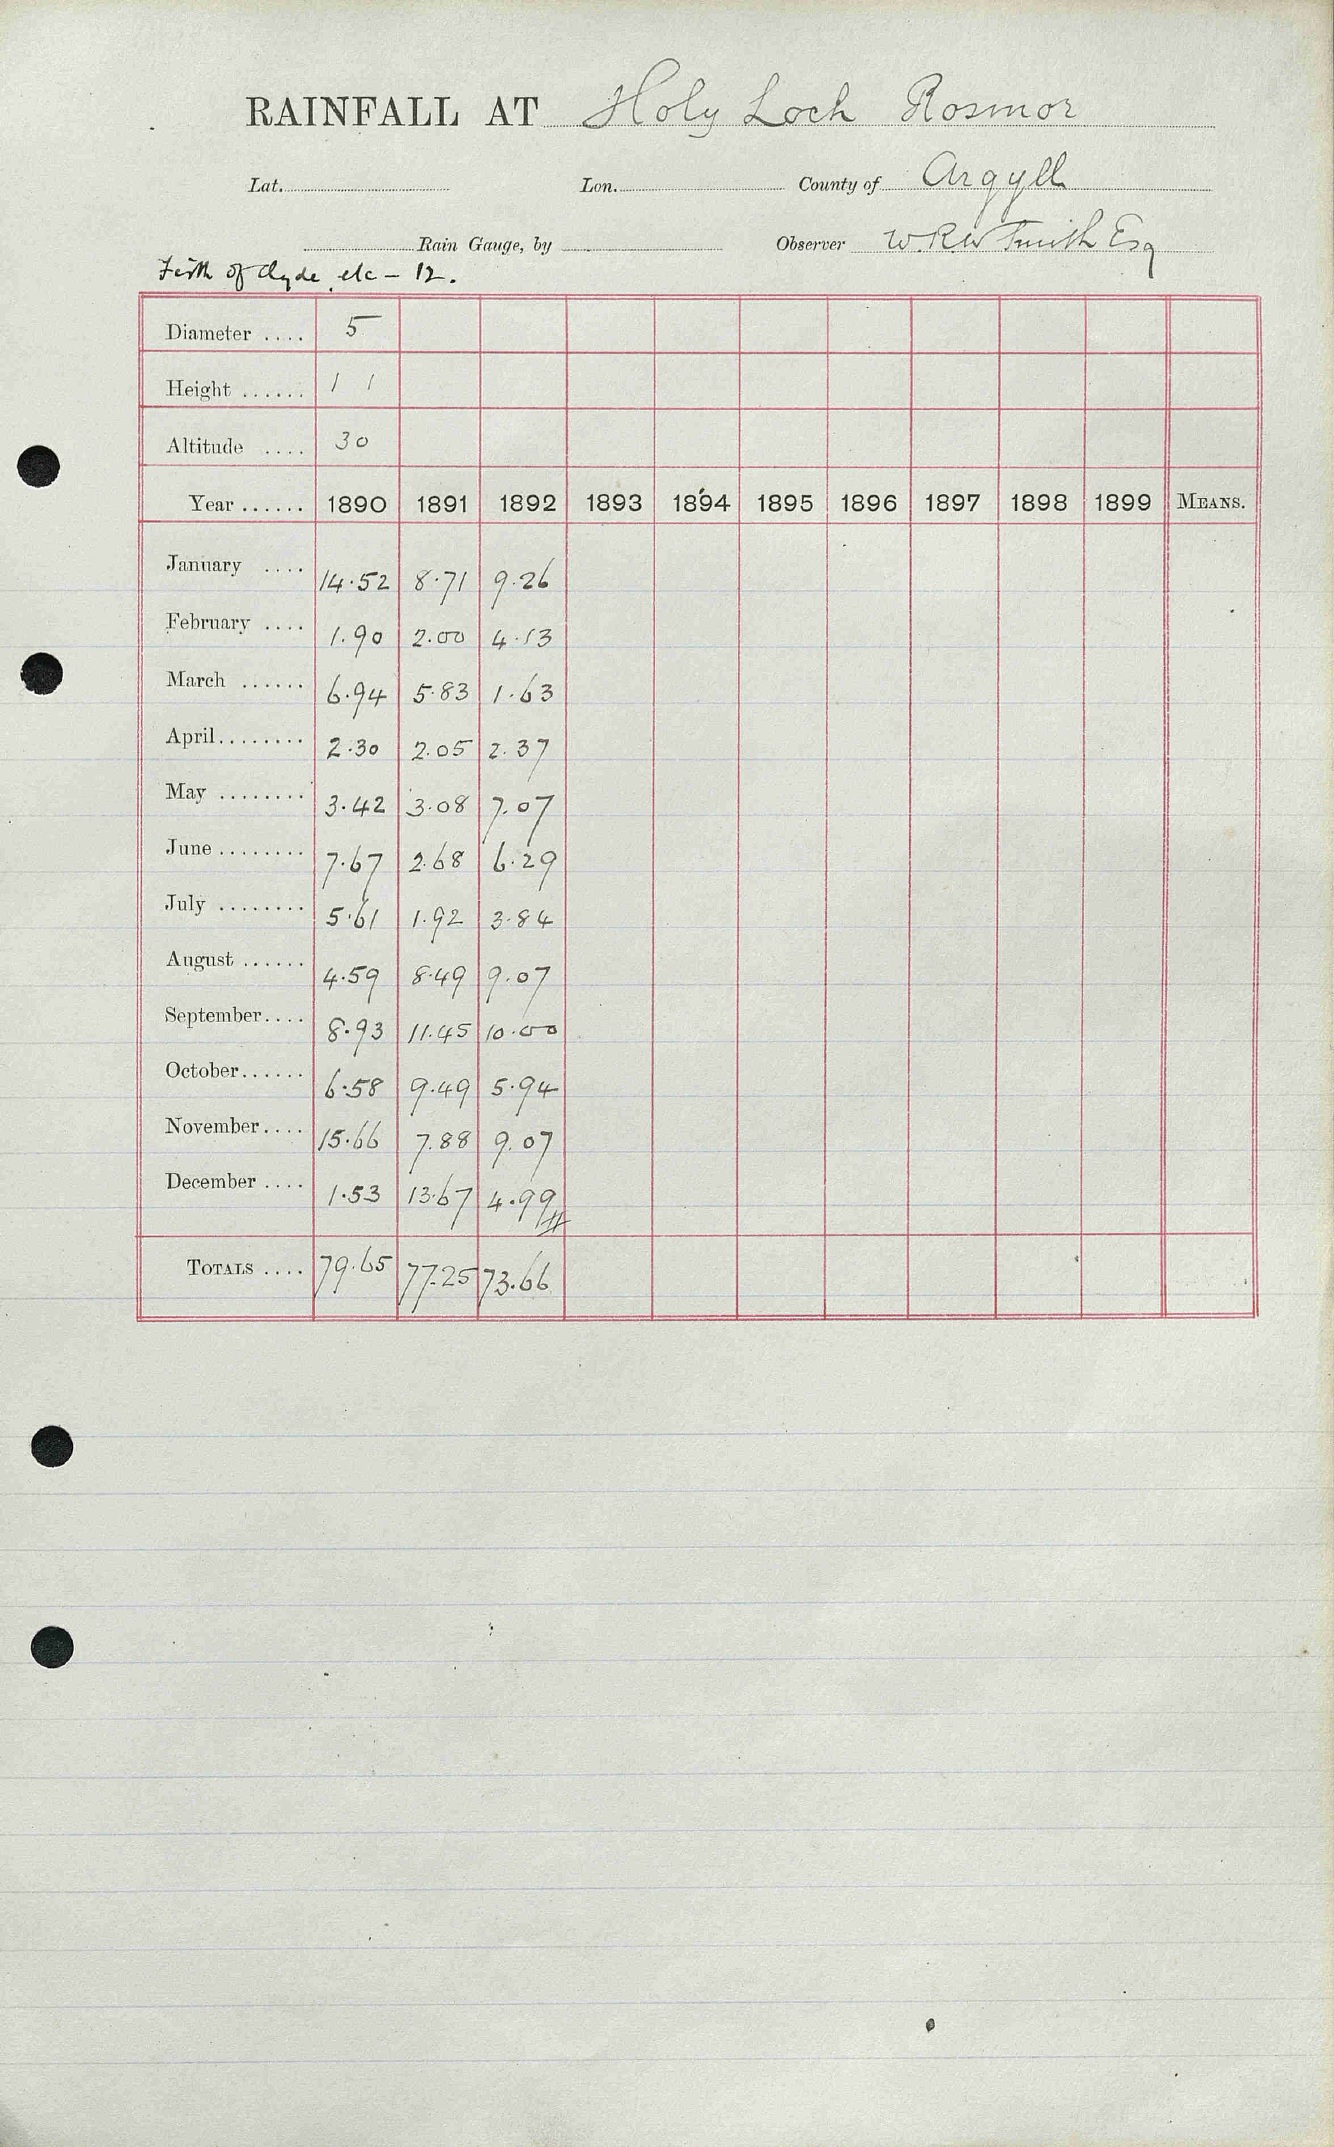 RAINFALL AT Holy Loch Rosmor
Lat. Lon. County of Argyll
Rain Gauge, by Observer W. R. W Smith Esq
Firth of Clyde, etc – 12.
Diameter .... 5
Height ...... 1 1
Altitude .... 30
Year ...... 1890 1891 1892 1893 1894 1895 1896 1897 1898 1899 MEANS.
January .... 14.52 8.71 9.26
February .... 1.90 2.00 4.13
March ...... 6.94 5.83 1.63
April........ 2.30 2.05 2.37
May ........ 3.42 3.08 7.07
June ........ 7.67 2.68 6.29
July ........ 5.61 1.92 3.84
August ...... 4.59 8.49 9.07
September.... 8.93 11.45 10.00
October...... 6.58 9.49 5.94
November.... 15.66 7.88 9.07
December .... 1.53 13.67 4.99
TOTALS .... 79.65 77.25 73.66